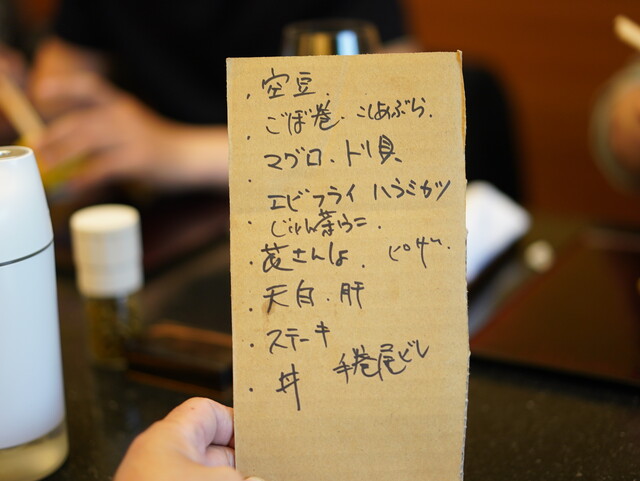 ・空豆.
・ごぼ巻 こしあぶら.
・マグロ.トリ貝
・エビフライ ハラミカツ
・じゅん菜ウニ.
・花さんしょ.
・天白.肝
・ステーキ
・丼 手巻尾ビレ